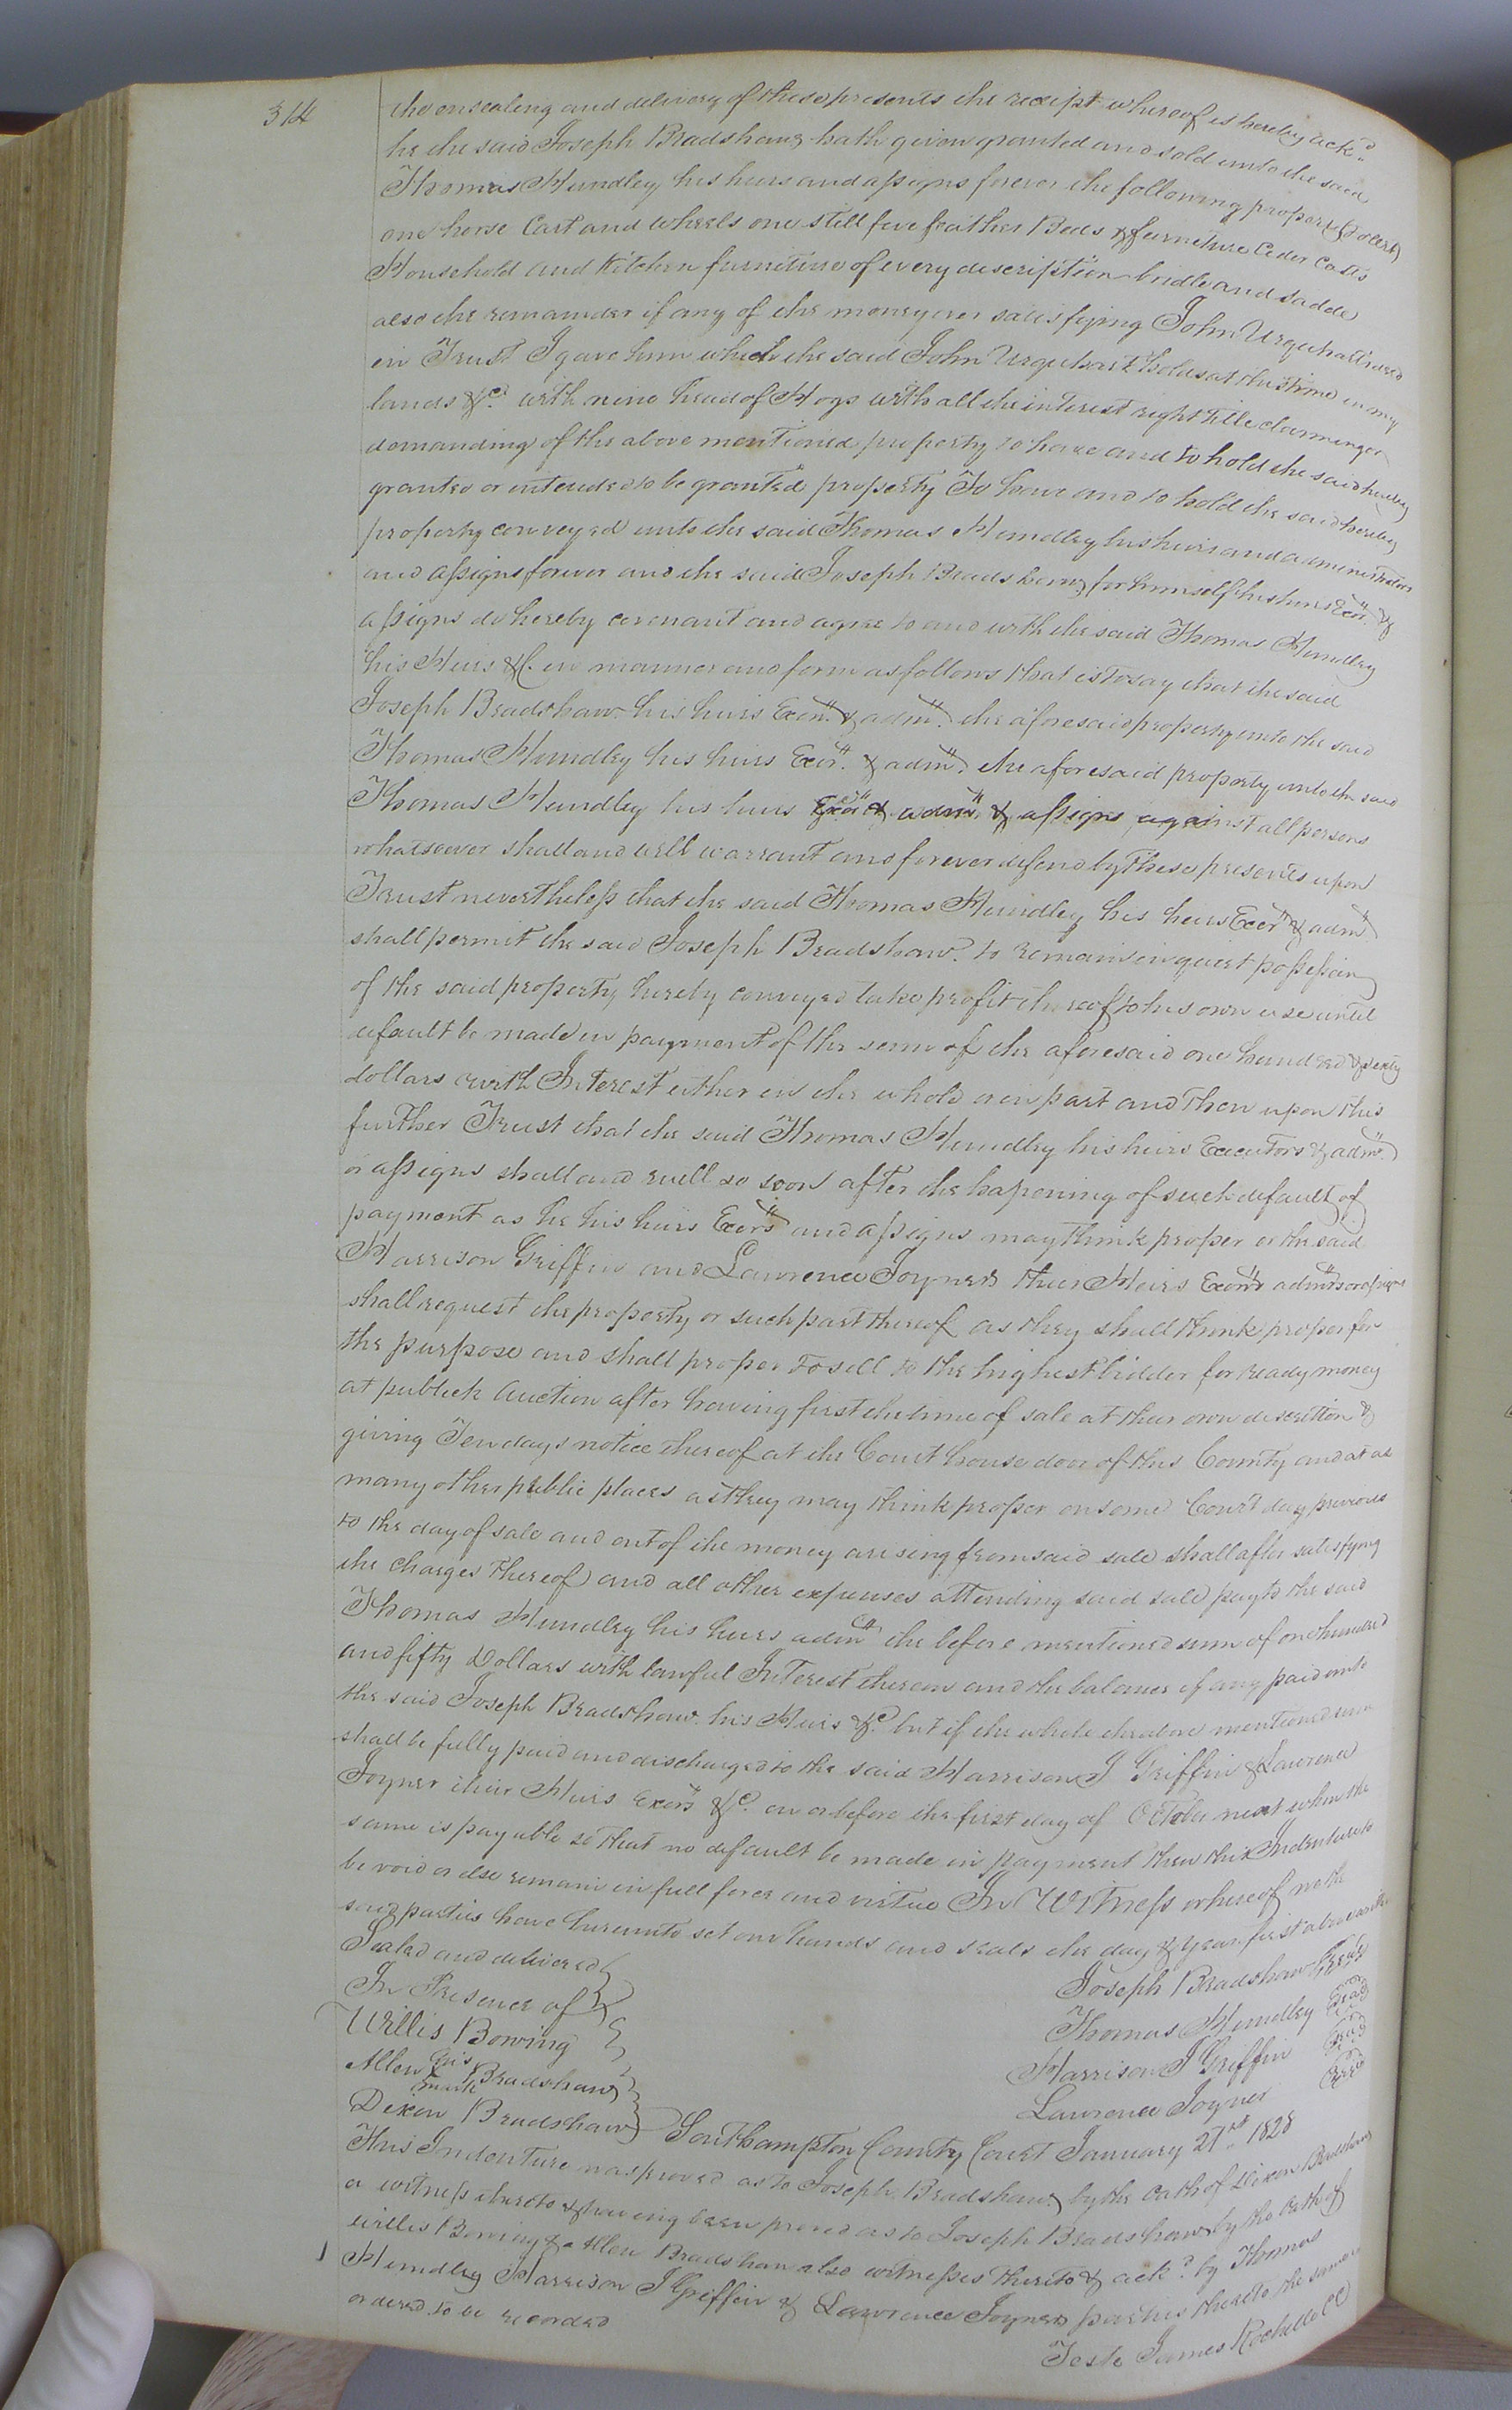 314
the ensealing and delivery of these presents the receipt whereof is hereby ackd
he the said Joseph Bradshaw hath given granted and sold unto the said
Thomas Hundley his heirs and assigns forever the following property (to wit)
one horse Cart and wheels one still five feather Beds & furniture Ceder Casks
Household and Kitchen furniture of every description bridle and saddle
also the remainder if any of the money over satisfying John Urquhart deed
in Trust I gave him which the said John Urquhart holds at this time in my
lands &c. with nine head of Hogs with all the interest right title
demanding of the above mentioned property to have and to hold the said hereby
granted or intended to be granted property To have and to hold the said hereby
property conveyed unto the said Thomas Hundley his heirs and administrators
and assigns forever and the said Joseph Bradshaw for himself his heirs Exors. &
assigns do hereby covenant and agree to and with the said Thomas Hundley
his Heirs &c. in manner and form as follows that is to say that the said
Joseph Bradshaw his heirs Exors. & adms. the aforesaid property unto the said
Thomas Hundley his heirs Exors. & adms. the aforesaid property unto the said
Thomas Hundley his heirs Exors & adms & assigns against all persons
whatsoever shall and will warrant and forever defend by these presents upon
Trust nevertheless that the said Thomas Hundley his heirs Exors & adms
shall permit the said Joseph Bradshaw to remain in quiet possession
of the said property hereby conveyed take profit thereof to his own use until
default be made in payment of the sum of the aforesaid one hundred &
dollars with Interest either in the whole or in part and then upon this
further Trust that the said Thomas Hundley his heirs Executors & adms.
or assigns shall and will so soon after the hapening of such default of
payment as he his heirs Exors and assigns may think proper or the said
Harrison Griffin and Lawrence Joyner their Heirs Exors adms or assigns
shall request the property or such part thereof as they shall think proper for
the purpose and shall proper to sell to the highest bidder for ready money
at publick Auction after having first the time of sale at their own discretion &
giving Ten days notice thereof at the Court house door of this County and at as
many other public places as they may think proper on some Court day previous
to the day of sale and out of the money arising from said sale shall after satisfying
the charges thereof and all other expenses attending said sale pay to the said
Thomas Hundley his heirs adms the before mentioned sum of one hundred
and fifty Dollars with lawful Interest thereon and the balance if any paid unto
the said Joseph Bradshaw his Heirs &c. but if the whole the above mentioned sum
shall be fully paid and discharged to the said Harrison J Griffin & Lawrence
Joyner their Heirs Exors &c. on or before the first day of October next when the
same is payable so that no default be made in payment then this Indenture to
be void or else remain in full force and virtue In Witness whereof we the
said parties have hereunto set our hands and seals the day & year first above writn
Sealed and delivered Joseph Bradshaw Seal
In Presence of Thomas Hundley Seal
Willis Bowing Harrison J Griffin Seal
Allen his mark Bradshaw Lawrence Joyner Seal
Dixon Bradshaw
Southampton County Court January 21st 1828
This Indenture was proved as to Joseph Bradshaw by the Oath of Dixon Bradshaw
a witness thereto & having been proved as to Joseph Bradshaw by the Oath of
Willis Bowing & Allen Bradshaw also witnesses thereto & ackd by Thomas
Hundley Harrison J Griffin & Lawrence Joyner parties thereto the same is
ordered to be recorded
Teste James Rochelle CC